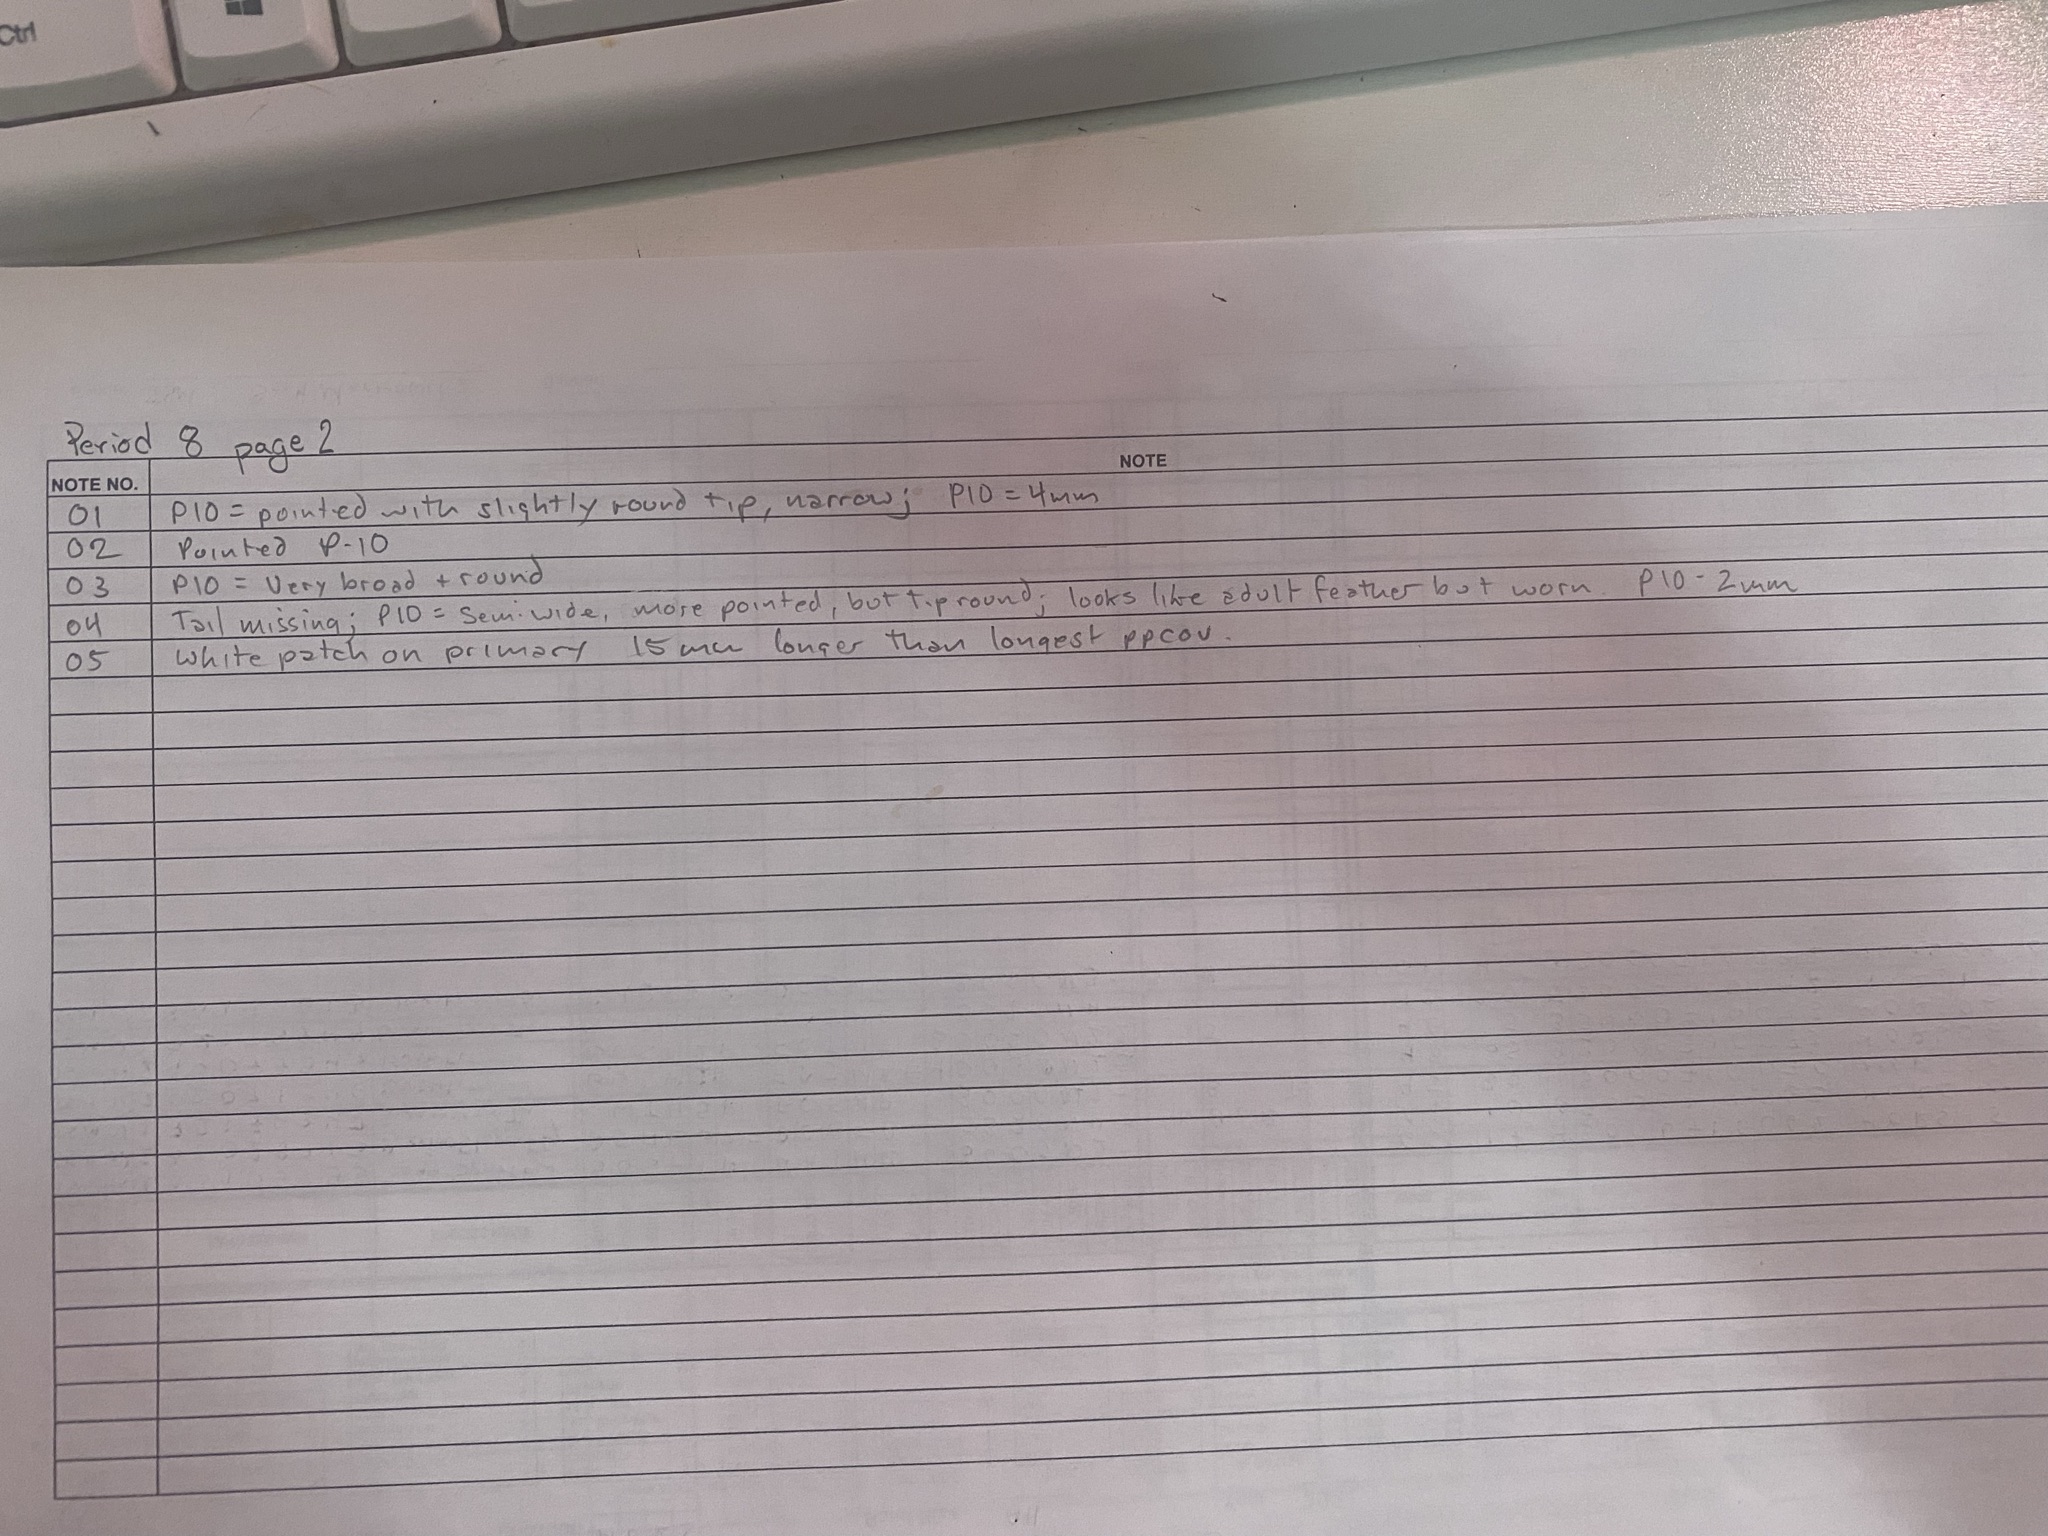 Ctrl
Period 8 page 2
NOTE NO. NOTE
01 P10 = pointed with slightly round tip, narrow; P10 = 4mm
02 Pointed P-10
03 P10 = Very broad + round
04 Tail missing; P10 = Semi-wide, more pointed, but tip round; looks like adult feather but worn. P10 - 2mm
05 White patch on primary 15 mm longer than longest ppcov.